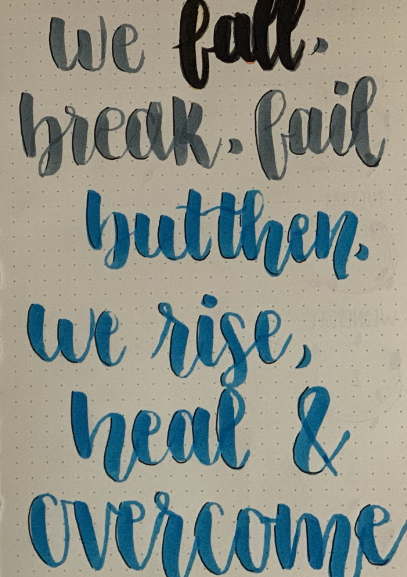 we fall.
break. fail
but then.
we rise,
heal &
overcome